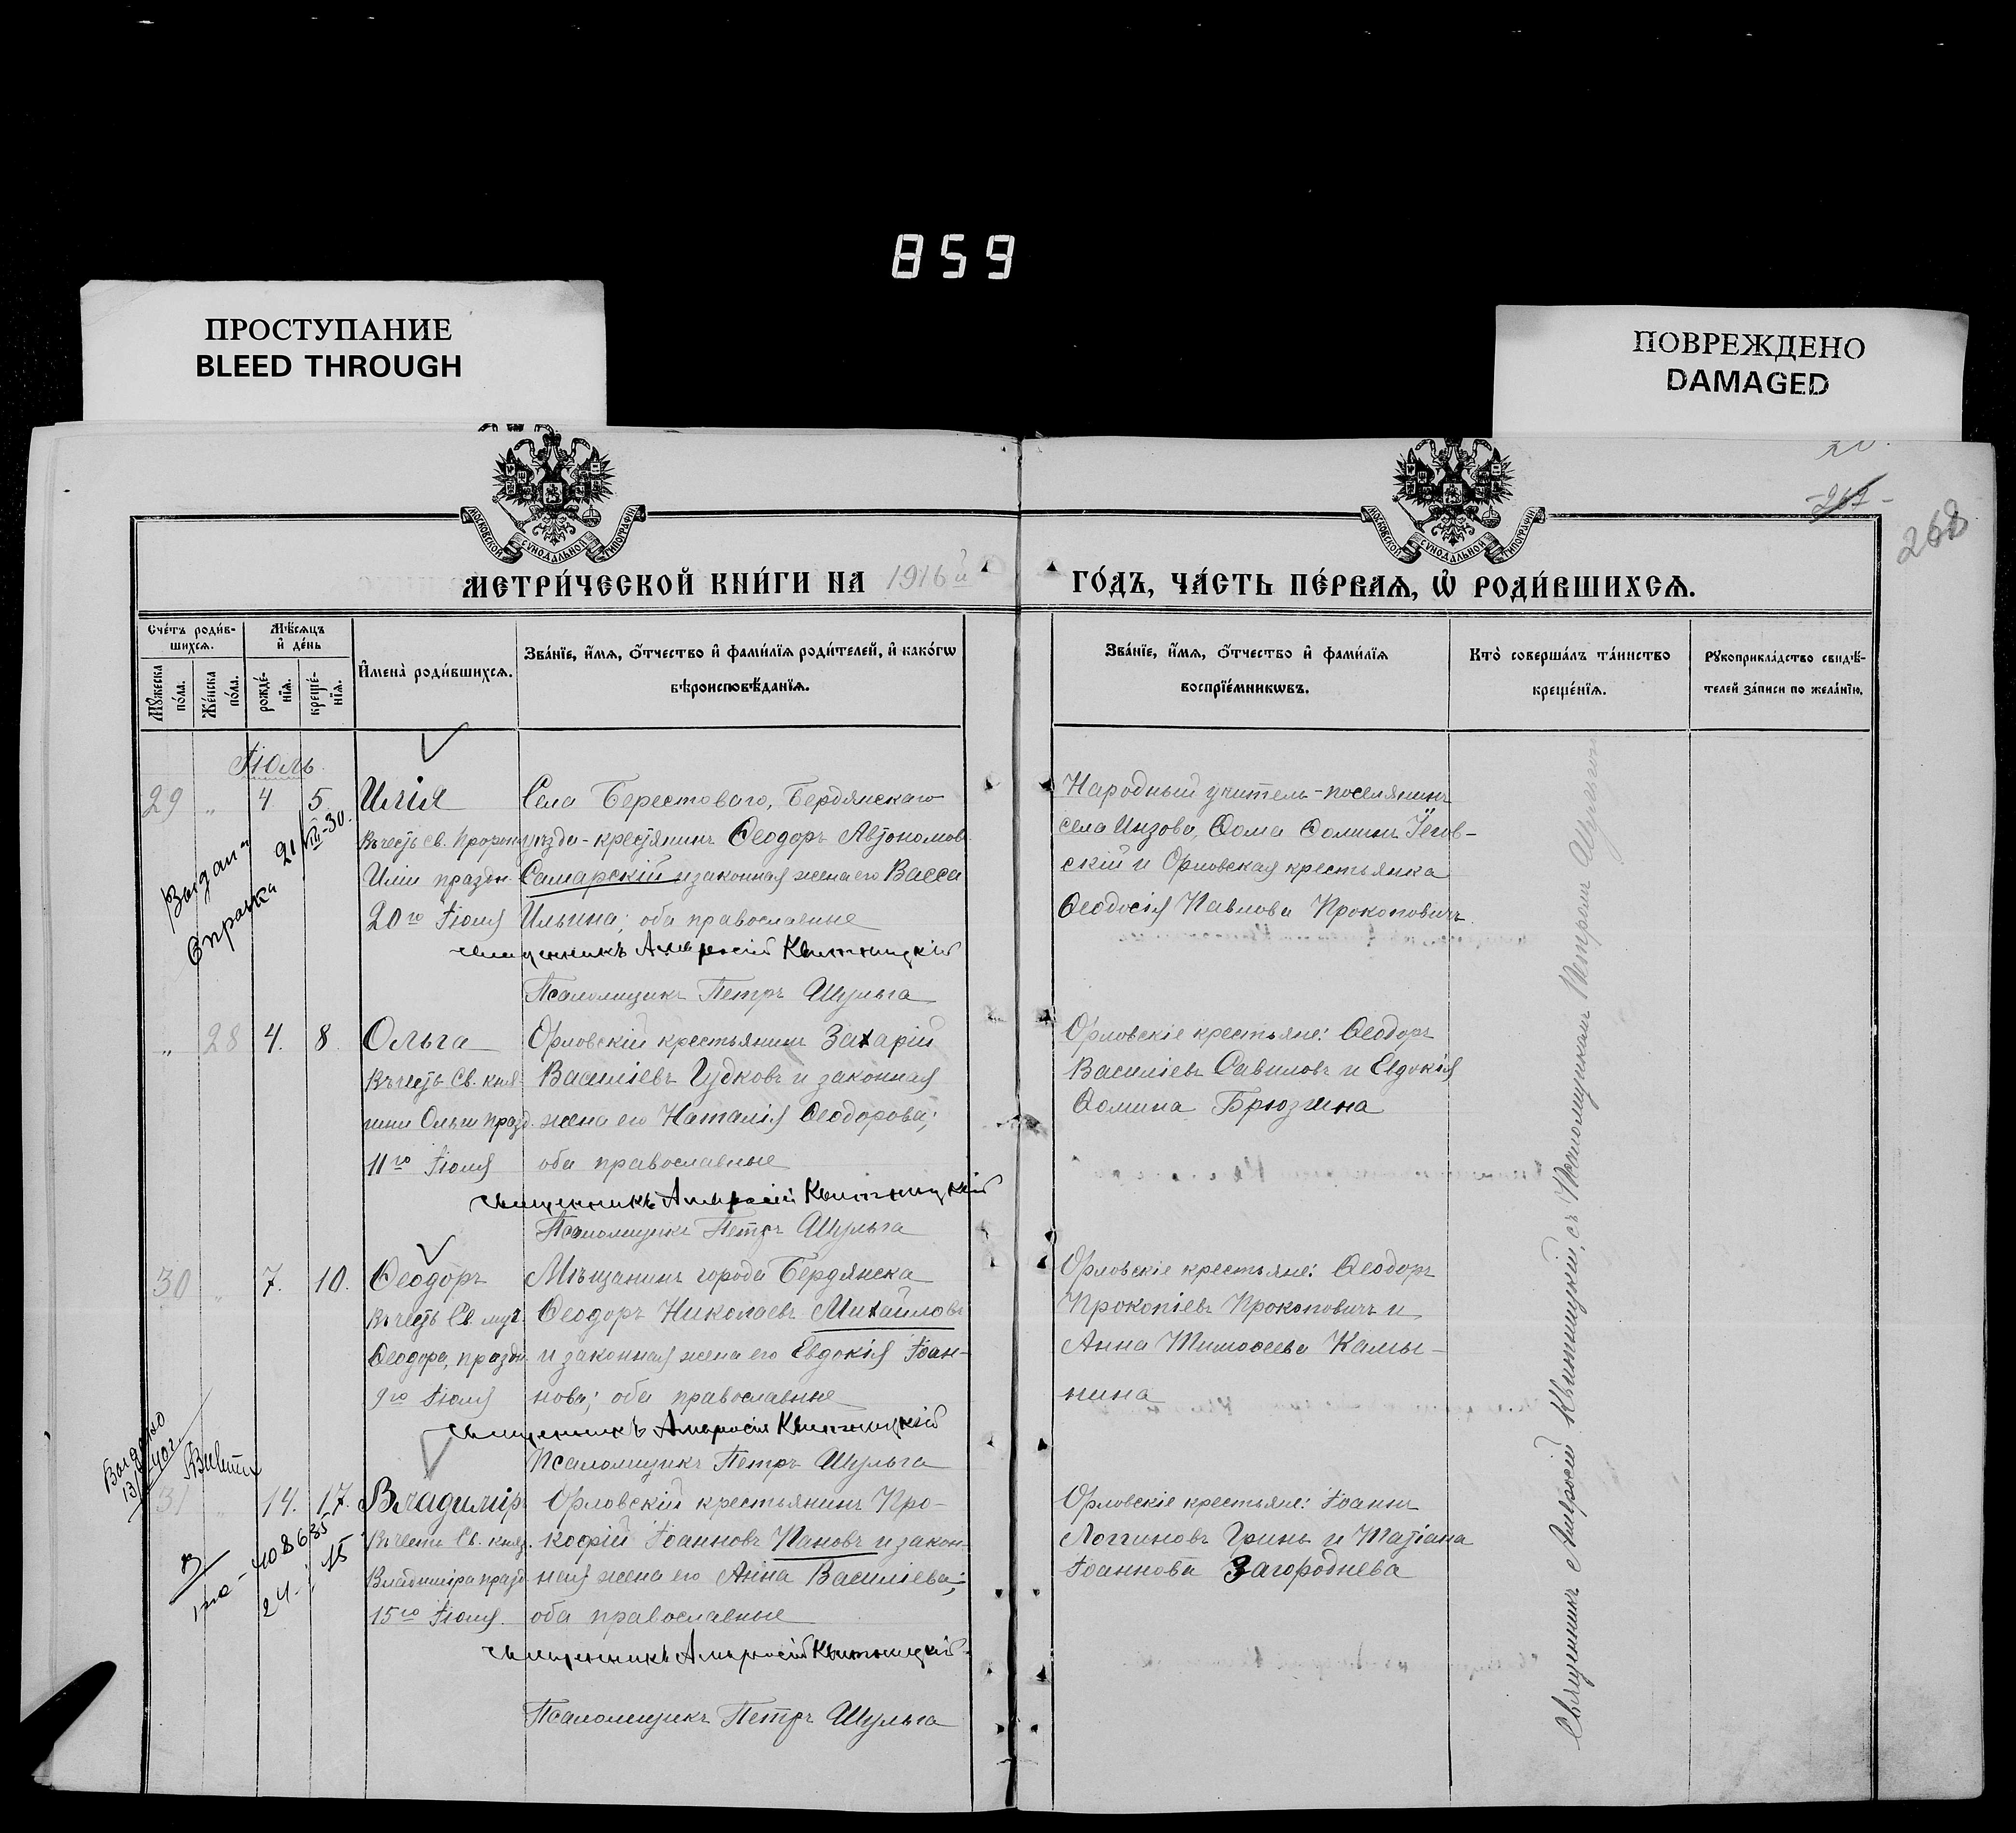 859
ПРОСТУПАНИЕ
BLEED THROUGH
ПОВРЕЖДЕНО
DAMAGED
МОСКОВСКОЙ СѴНОДАЛЬНОЙ ТИПОГРАФІИ
МОСКОВСКОЙ СѴНОДАЛЬНОЙ ТИПОГРАФІИ
267
268
МЕТРИ́ЧЕСКОЙ КНИ́ГИ НА 1916й
ГО́ДЪ, ЧА́СТЬ ПЕ́РВАЯ, Ѡ҆ РОДИ́ВШИХСЯ.
Сче́тъ роди́в-
шихся.
Мѣ́сяцъ
и҆ де́нь
Мꙋ́жеска по́ла.
Же́нска по́ла.
рожде́-
нїя.
креще́-
нїя.
И҆мена̀ роди́вшихся.
Зва́нїе, и҆́мя, ѻ҆́тчество и҆ фами́лїя роди́телей, и҆ како́гѡ
вѣроисповѣ́данїя.
Зва́нїе, и҆́мя, ѻ҆́тчество и҆ фами́лїя
воспрїе́мникѡвъ.
Кто̀ соверша́лъ та́инство
креще́нїя.
Рꙋкоприкла́дство свидѣ́-
телей за́писи по жела́нїю.
Іюль
29 " 4 5 Илія
Въ честь Св. Пророка
Иліи праздн.
20го Іюля
Села Берестоваго, Бердянскаго
уѣзда - крестьянинъ Ѳеодоръ Автономовъ
Самарскій и законная жена его Васса
Ильина; оба православные
Священникъ Амвросій Квитницкій
Псаломщикъ Петръ Шульга
Народный учитель-поселянинъ
села Инзова, Ѳома Ѳоминъ
скій и Орловская крестьянка
Ѳеодосія Павлова Прокоповичъ
Справка
21/VII-30.
" 28 4. 8 Ольга
Въ честь Св. кня-
гини Ольги празд.
11го Іюля
Орловскій крестьянинъ Захарій
Василіевъ Гудковъ и законная
жена его Наталія Ѳеодорова;
оба православные
Священникъ Амвросій Квитницкій
Псаломщикъ Петръ Шульга
Орловскіе крестьяне: Ѳеодоръ
Василіевъ Савиловъ и Евдокія
Ѳомина Брюзгина
30 " 7. 10. Ѳеодоръ
Въ честь Св. муч.
Ѳеодора, праздн.
9го Іюля
Мѣщанинъ города Бердянска
Ѳеодоръ Николаевъ Михайловъ
и законная жена его Евдокія Іоан-
нова; оба православные
Священникъ Амвросій Квитницкій
Псаломщикъ Петръ Шульга
Орловскіе крестьяне: Ѳеодоръ
Прокопіевъ Прокоповичъ и
Анна Тимоѳеева Камы-
нина
31 " 14. 17. Владиміръ
Въ честь Св. княз.
Владиміра празд.
15го Іюля.
Орловскій крестьянинъ Про-
кофій Іоанновъ Пановъ и закон-
ная жена его Анна Василіева;
оба православные
Священникъ Амвросій Квитницкій
Псаломщикъ Петръ Шульга
Орловскіе крестьяне: Іоаннъ
Логгиновъ Гринь и Татіана
Іоаннова Загороднева
Священникъ Амвросій Квитницкій, съ Псаломщикомъ Петромъ Шульгою